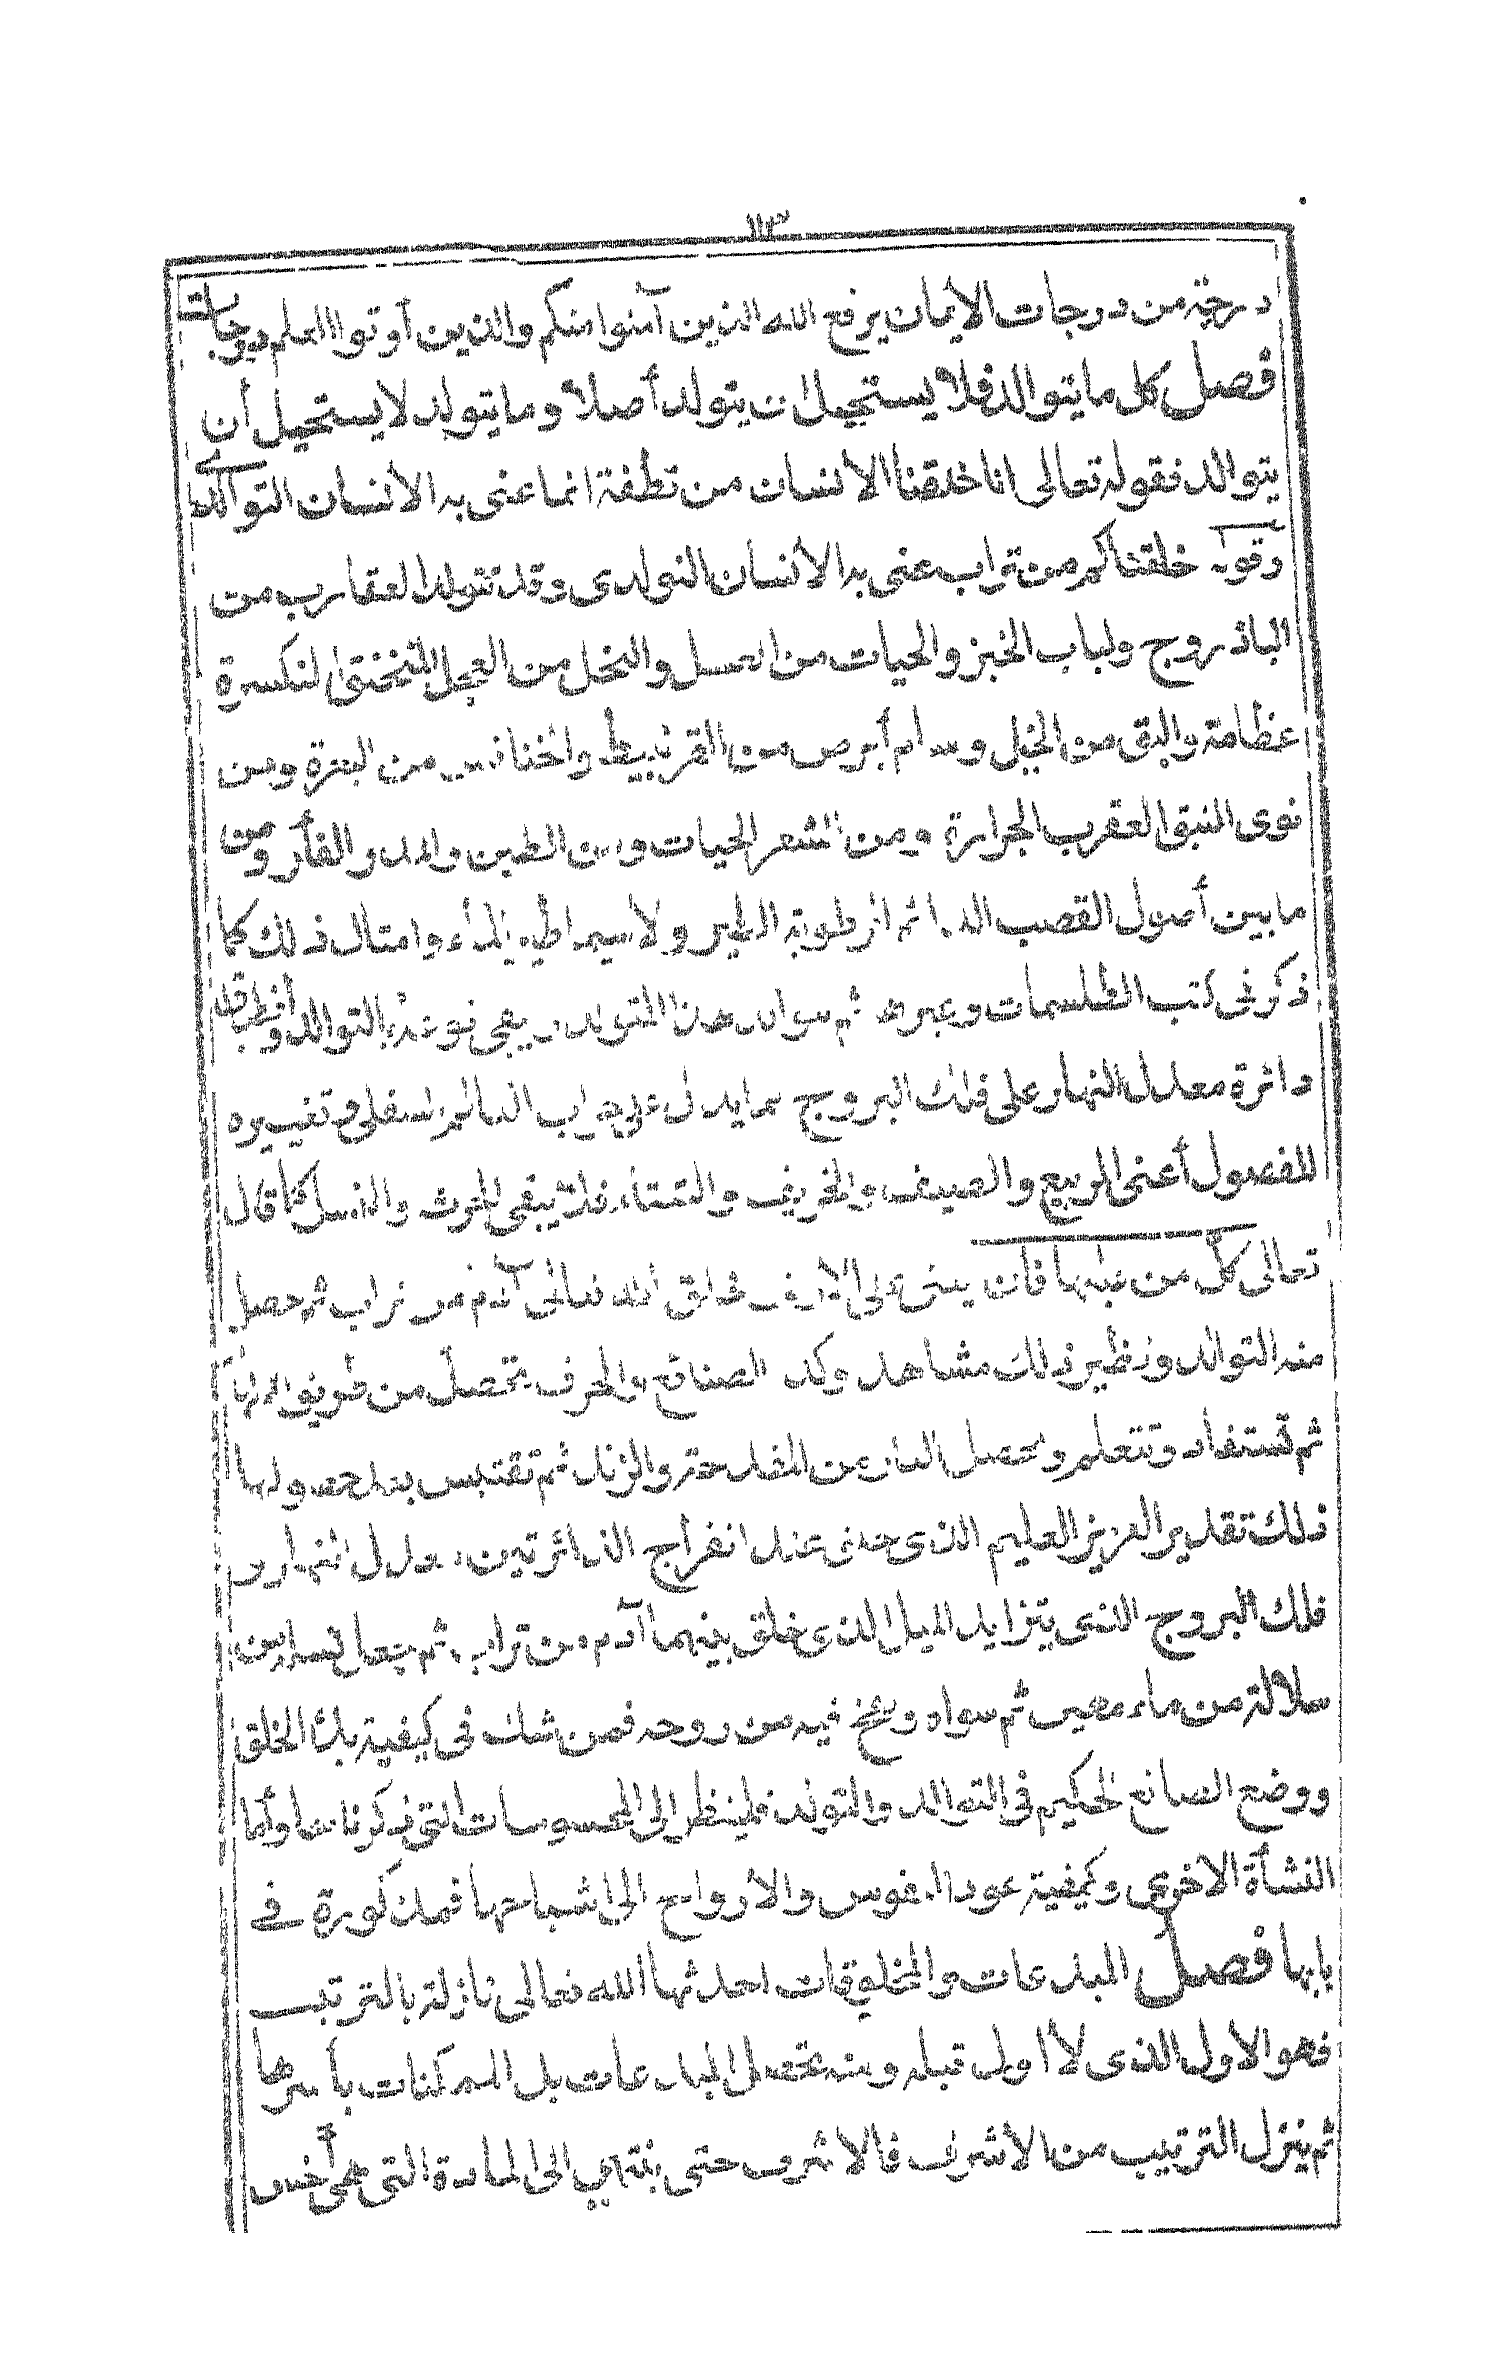 ١١٣
درجة من درجات الايمان يرفع الله الذين آمنوا منكم والذين أوتوا العلم درجات
فصل كل ما يتوالد فلا يستحيل ان يتولد أصلا وما يتولد لا يستحيل أن
يتوالد فقوله تعالى انا خلقنا الأنسان من نطفة انما عنى به الأنسان التوالدى
وقوله خلقناكم من تراب عنى به الأنسان التولدى وقد تتولد العقارب من
الباذروج ولباب الخبز والحيات من العسل والنحل من العجل المنخنق المنكسرة
عظامه والبق من الخل وسام أبرص من القرنبيط والخنافس من البعرة ومن
نوى النبق العقرب الجرارة ومن الشعر الحيات ومن الطين والمدر الفأر ومن
ما بين أصول القصب الدائم الرطوبة الطير ولا سيما طير الماء وامثال ذلك كما
ذكر فى كتب الطلسمات وغيره ثم يتوالد هذا المتولد ويبقى نوعه بالتوالد
دائرة معدل النهار على فلك البروج مما يدل على خراب العالم السفلى وتغييره
للفصول أعنى الربيع والصيف والخريف والشتاء فلا يبقى الحرث والنسل كما قال
تعالى كل من عليها فان يعنى على الارض فخلق الله تعالى آدم من تراب ثم حصل
منه التوالد ونظير ذلك مشاهد وكذا الصنائع والحرف تحصل من طريق الالهام
ثم تستفاد وتتعلم ويحصل النار من المقدحة والزند ثم تقتبس بعد حصولها
ذلك تقدير العزيز العليم الذى خلق عند انفراج الدائرتين معدل النهار و
فلك البروج الذى يتزايد الميل الذى خلق بينهما آدم من تراب ثم جعل نسله من
سلالة من ماء مهين ثم سواه ونفخ فيه من روحه فمن شك فى كيفية بدء الخلق
ووضع الصانع الحكيم فى التوالد والتولد فلينظر الى المحسوسات التى ذكرناها وأما
النشأة الاخرى وكيفية عود النفوس والأرواح الى اشباحها فمذكورة فى
بابها فصل المبدعات والمخلوقات احدثها الله تعالى نازلة بالترتيب
فهو الاول الذى لا أول قبله ومنه تحصل المبدعات بل الممكنات بأسرها
ثم ينزل الترتيب من الأشرف فالاشرف حتى ينتهى الى المادة التى هى أخس